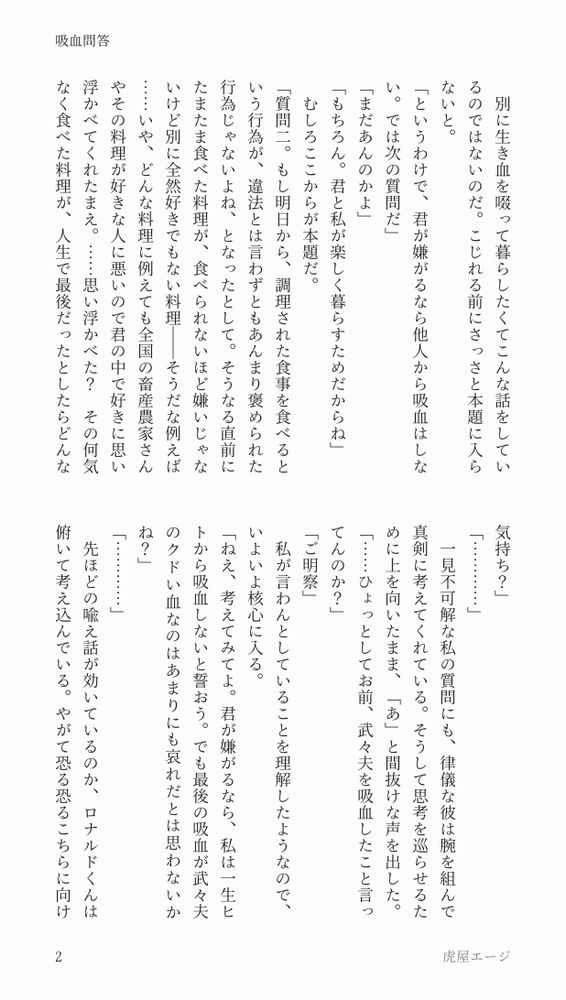 吸血問答
　別に生き血を啜って暮らしたくてこんな話をしてい
るのではないのだ。こじれる前にさっさと本題に入ら
ないと。
「というわけで、君が嫌がるなら他人から吸血はしな
い。では次の質問だ」
「まだあんのかよ」
「もちろん。君と私が楽しく暮らすためだからね」
　むしろここからが本題だ。
「質問二。もし明日から、調理された食事を食べると
いう行為が、違法とは言わずともあんまり褒められた
行為じゃないよね、となったとして。そうなる直前に
たまたま食べた料理が、食べられないほど嫌いじゃな
いけど別に全然好きでもない料理――そうだな例えば
……いや、どんな料理に例えても全国の畜産農家さん
やその料理が好きな人に悪いので君の中で好きに思い
浮かべてくれたまえ。……思い浮かべた？　その何気
なく食べた料理が、人生で最後だったとしたらどんな
気持ち？」
「…………」
　一見不可解な私の質問にも、律儀な彼は腕を組んで
真剣に考えてくれている。そうして思考を巡らせるた
めに上を向いたまま、「あ」と間抜けな声を出した。
「……ひょっとしてお前、武々夫を吸血したこと言っ
てんのか？」
「ご明察」
　私が言わんとしていることを理解したようなので、
いよいよ核心に入る。
「ねえ、考えてみてよ。君が嫌がるなら、私は一生ヒ
トから吸血しないと誓おう。でも最後の吸血が武々夫
のクドい血なのはあまりにも哀れだとは思わないか
ね？」
「…………」
　先ほどの喩え話が効いているのか、ロナルドくんは
俯いて考え込んでいる。やがて恐る恐るこちらに向け
2
虎屋エージ